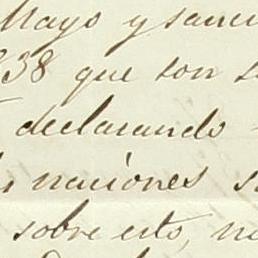 Mayo y sanci
38 que son s
declarando
naciones s
sobre esto, no